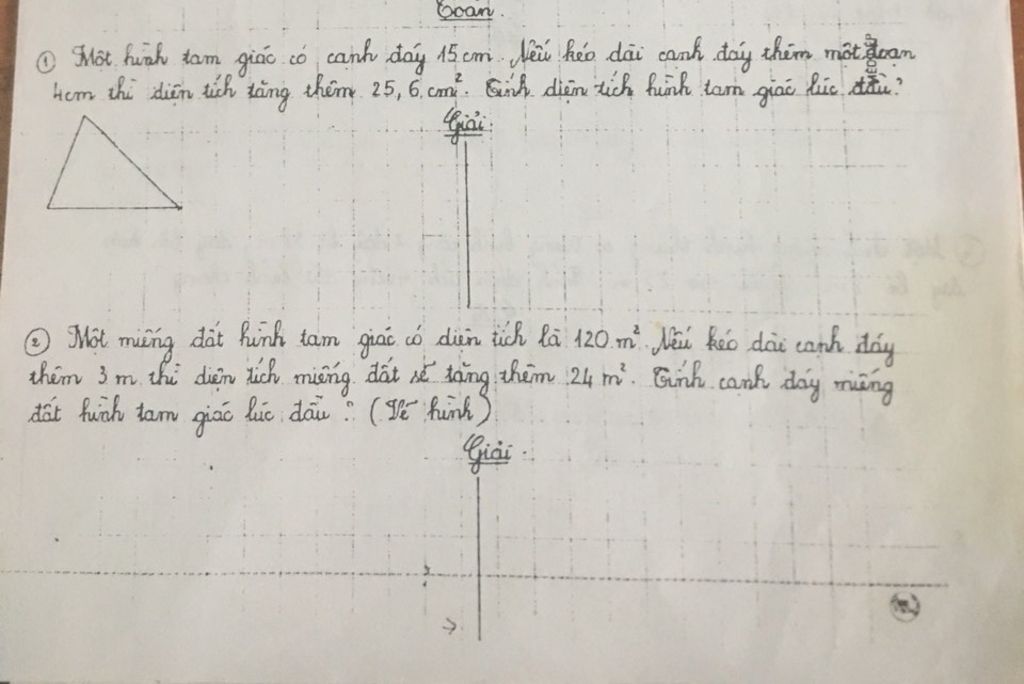 Toán.
① Một hình tam giác có cạnh đáy 15 cm. Nếu kéo dài cạnh đáy thêm một đoạn
4cm thì diện tích tăng thêm 25,6 cm². Tính diện tích hình tam giác lúc đầu?
Giải.
② Một miếng đất hình tam giác có diện tích là 120 m². Nếu kéo dài cạnh đáy
thêm 3 m thì diện tích miếng đất sẽ tăng thêm 24 m². Tính cạnh đáy miếng
đất hình tam giác lúc đầu? (Vẽ hình)
Giải.